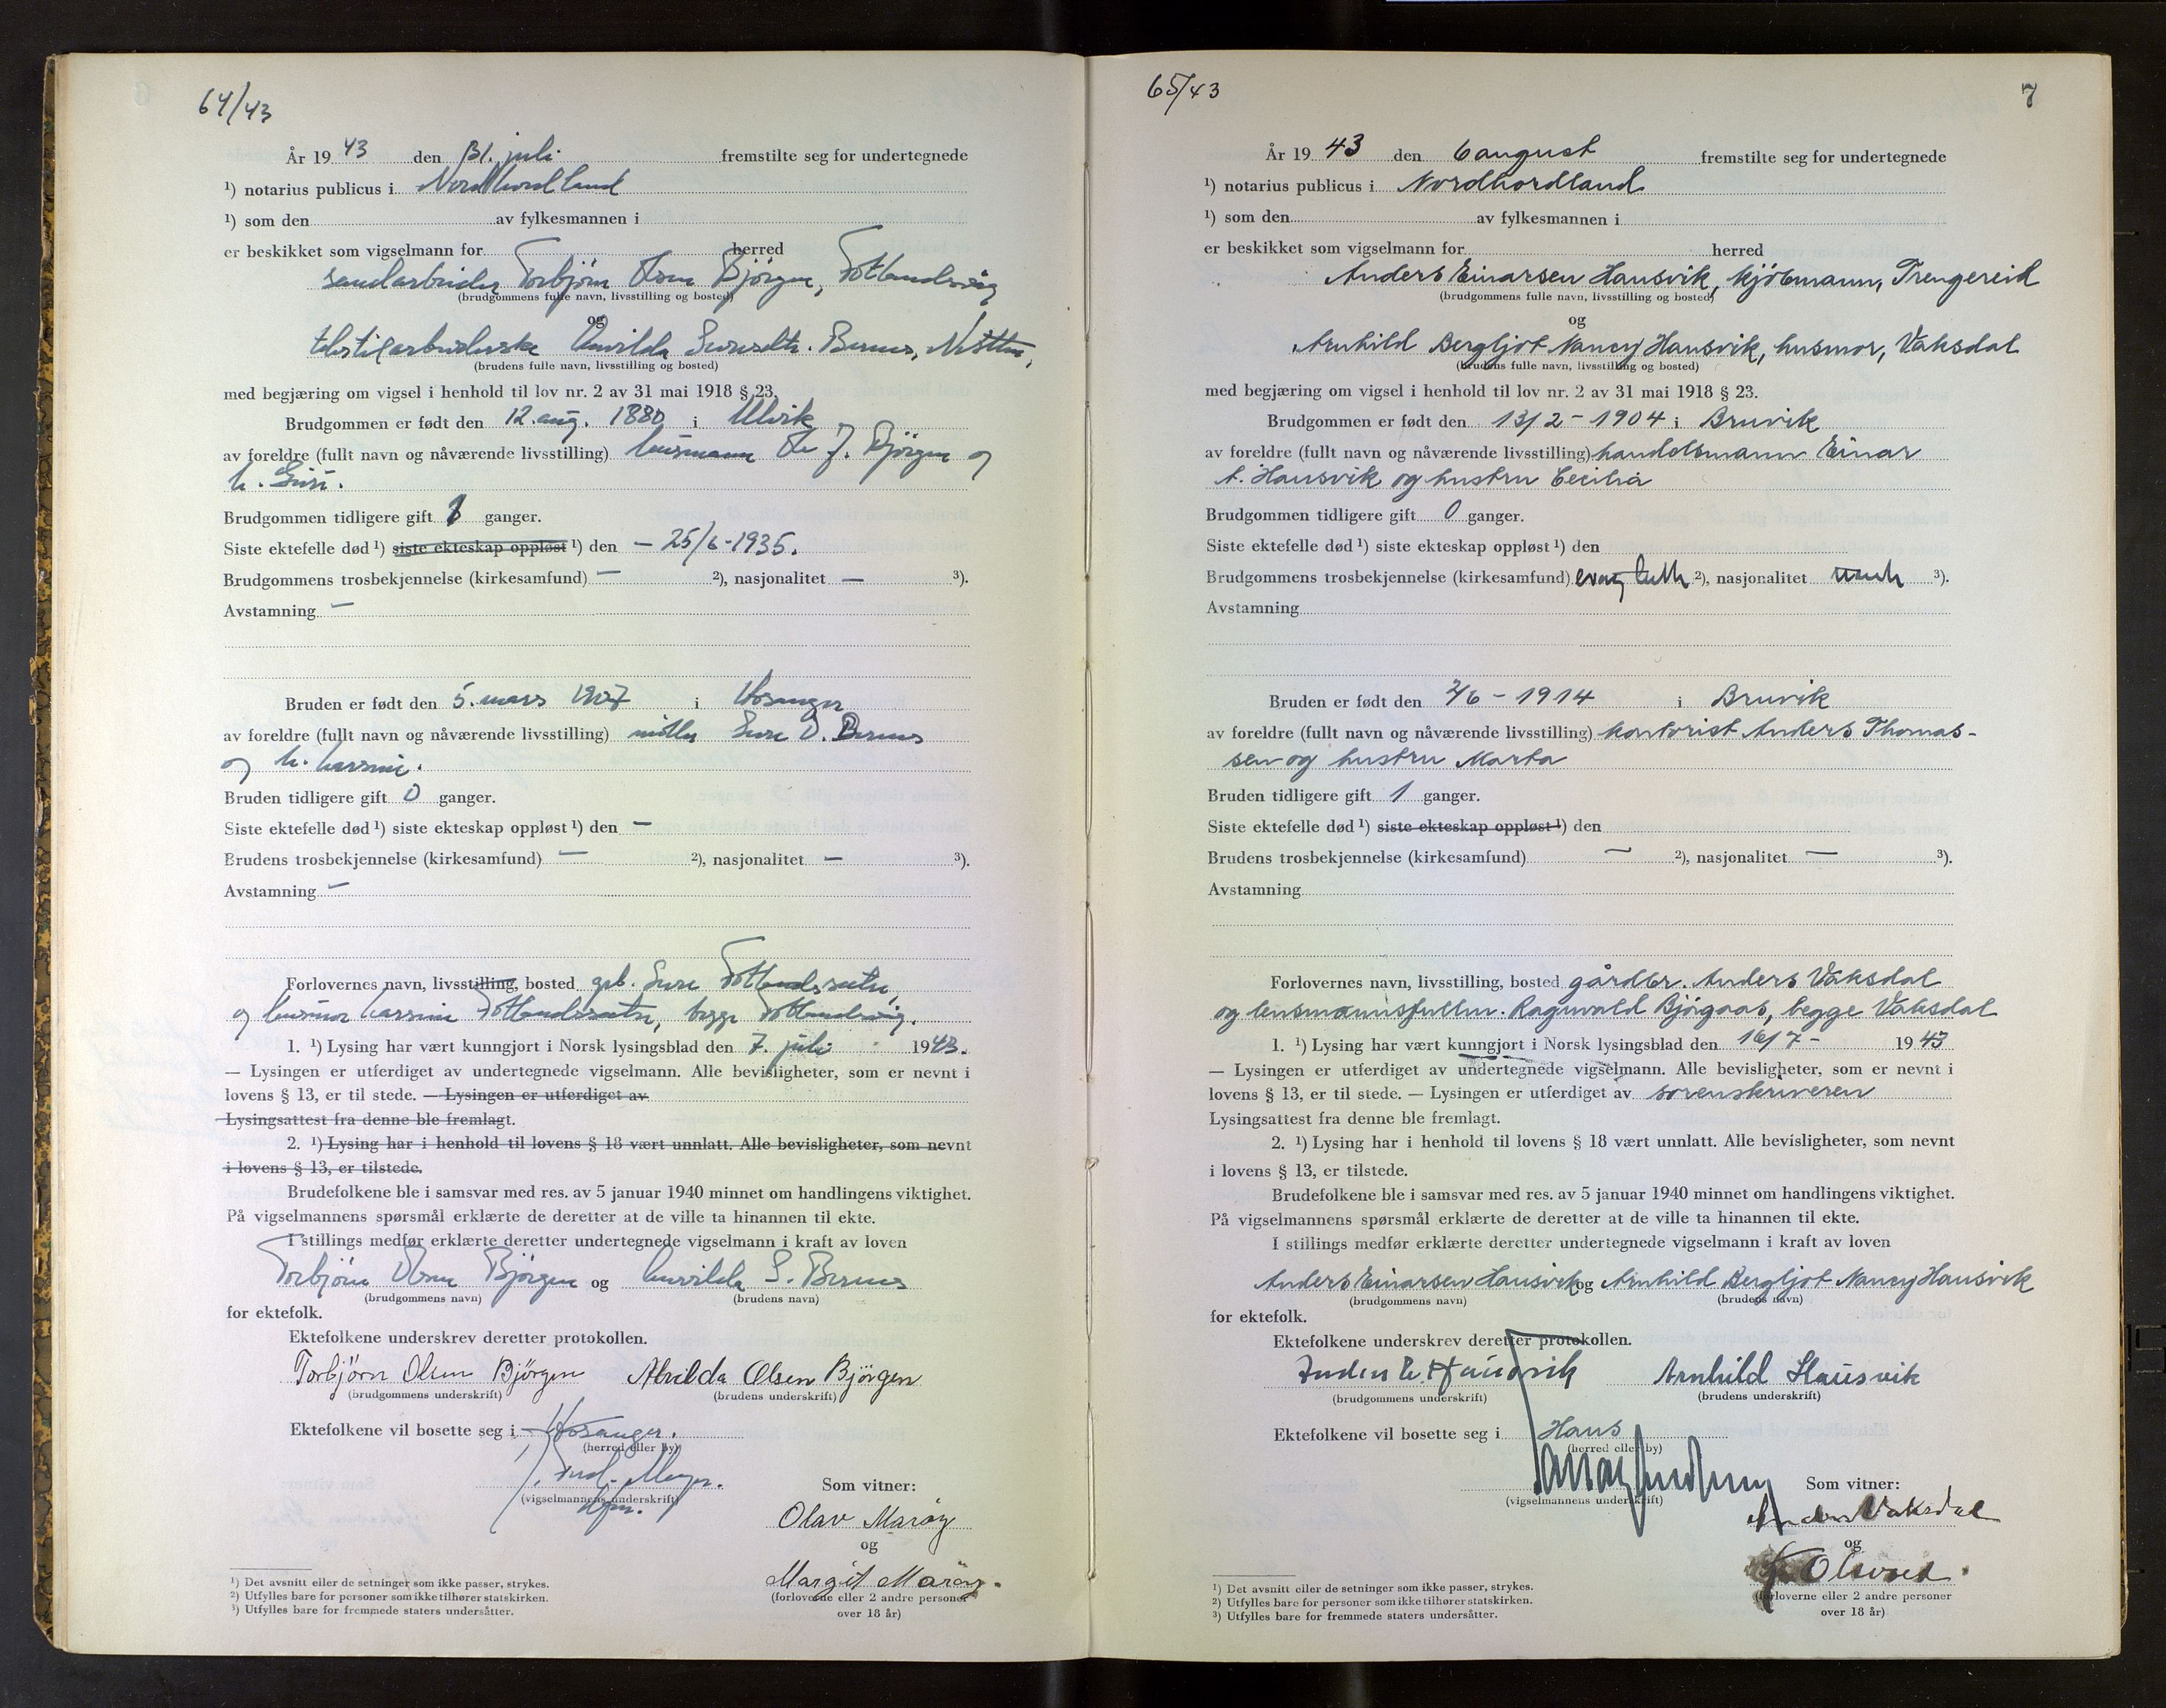 64/43
År 19 43 den 31. juli fremstilte seg for undertegnede
¹) notarius publicus i Nordhordland
¹) som den av fylkesmannen i
er beskikket som vigselmann for herred
sandarbeider Torbjörn Olsen Björgen, Fotlandsvåg
(brudgommens fulle navn, livsstilling og bosted)
og
(brudens fulle navn, livsstilling og bosted)
med begjæring om vigsel i henhold til lov nr. 2 av 31 mai 1918 § 23.
Brudgommen er født den 12. aug. 1880 i Ulvik
av foreldre (fullt navn og nåværende livsstilling) husmann Ole J. Björgen og
h. Siri.
Brudgommen tidligere gift ganger.
Siste ektefelle død ¹) siste ekteskap oppløst ¹) den - 25/6-1935.
Brudgommens trosbekjennelse (kirkesamfund) — ²), nasjonalitet — ³).
Avstamning —
Bruden er født den 5. mars i Hosanger
av foreldre (fullt navn og nåværende livsstilling) møller Sverre O. Bernes
og h.
Bruden tidligere gift 0 ganger.
Siste ektefelle død ¹) siste ekteskap oppløst ¹) den —
Brudens trosbekjennelse (kirkesamfund) — ²), nasjonalitet — ³).
Avstamning —
Forlovernes navn, livsstilling, bosted
og husmor begge Fotlandsvåg.
1. ¹) Lysing har vært kunngjort i Norsk lysingsblad den 7. juli 1943.
— Lysingen er utferdiget av undertegnede vigselmann. Alle bevisligheter, som er nevnt i
lovens § 13, er til stede. — Lysingen er utferdiget av
Lysingsattest fra denne ble fremlagt.
2. ¹) Lysing har i henhold til lovens § 18 vært unnlatt. Alle bevisligheter, som nevnt
i lovens § 13, er tilstede.
Brudefolkene ble i samsvar med res. av 5 januar 1940 minnet om handlingens viktighet.
På vigselmannens spørsmål erklærte de deretter at de ville ta hinannen til ekte.
I stillings medfør erklærte deretter undertegnede vigselmann i kraft av loven
Torbjörn Olsen Björgen og S. Bernes
(brudgommens navn) (brudens navn)
for ektefolk.
Ektefolkene underskrev deretter protokollen.
Torbjörn Olsen Björgen Alvilda Olsen Björgen
(brudgommens underskrift) (brudens underskrift)
Ektefolkene vil bosette seg i Hosanger.
(herred eller by)
(vigselmannens underskrift)
Som vitner:
Olav Marøy
og
Margit Marøy.
(forloverne eller 2 andre personer
over 18 år)
¹) Det avsnitt eller de setninger som ikke passer, strykes.
²) Utfylles bare for personer som ikke tilhører statskirken.
³) Utfylles bare for fremmede staters undersåtter.
65/43
7
År 19 43 den 6 august fremstilte seg for undertegnede
¹) notarius publicus i Nordhordland
¹) som den av fylkesmannen i
er beskikket som vigselmann for herred
Anders Einarsen Hausvik, kjöbmann, Trengereid
(brudgommens fulle navn, livsstilling og bosted)
og
Arnhild Bergljot Nancy Hausvik, husmor, Vaksdal
(brudens fulle navn, livsstilling og bosted)
med begjæring om vigsel i henhold til lov nr. 2 av 31 mai 1918 § 23.
Brudgommen er født den 13/2 - 1904 i Bruvik
av foreldre (fullt navn og nåværende livsstilling) handelsmann Einar
A. Hausvik og hustru Cecilia
Brudgommen tidligere gift 0 ganger.
Siste ektefelle død ¹) siste ekteskap oppløst ¹) den
Brudgommens trosbekjennelse (kirkesamfund) evag luth ²), nasjonalitet norsk ³).
Avstamning
Bruden er født den 2/6 - 1914 i Bruvik
av foreldre (fullt navn og nåværende livsstilling) kontorist Anders Thomas-
sen og hustru Marta
Bruden tidligere gift 1 ganger.
Siste ektefelle død ¹) siste ekteskap oppløst ¹) den
Brudens trosbekjennelse (kirkesamfund) — ²), nasjonalitet — ³).
Avstamning
Forlovernes navn, livsstilling, bosted gårdbr. Anders Vaksdal
og lensmannsfullm. Ragnvald Björgaas, begge Vaksdal
1. ¹) Lysing har vært kunngjort i Norsk lysingsblad den 16/7 - 1943
— Lysingen er utferdiget av undertegnede vigselmann. Alle bevisligheter, som er nevnt i
lovens § 13, er til stede. — Lysingen er utferdiget av sorenskriveren
Lysingsattest fra denne ble fremlagt.
2. ¹) Lysing har i henhold til lovens § 18 vært unnlatt. Alle bevisligheter, som nevnt
i lovens § 13, er tilstede.
Brudefolkene ble i samsvar med res. av 5 januar 1940 minnet om handlingens viktighet.
På vigselmannens spørsmål erklærte de deretter at de ville ta hinannen til ekte.
I stillings medfør erklærte deretter undertegnede vigselmann i kraft av loven
Anders Einarsen Hausvik og Arnhild Bergljot Nancy Hausvik
(brudgommens navn) (brudens navn)
for ektefolk.
Ektefolkene underskrev deretter protokollen.
Anders E. Hausvik Arnhild Hausvik
(brudgommens underskrift) (brudens underskrift)
Ektefolkene vil bosette seg i Haus
(herred eller by)
(vigselmannens underskrift)
Som vitner:
Anders Vaksdal
og
(forloverne eller 2 andre personer
over 18 år)
¹) Det avsnitt eller de setninger som ikke passer, strykes.
²) Utfylles bare for personer som ikke tilhører statskirken.
³) Utfylles bare for fremmede staters undersåtter.